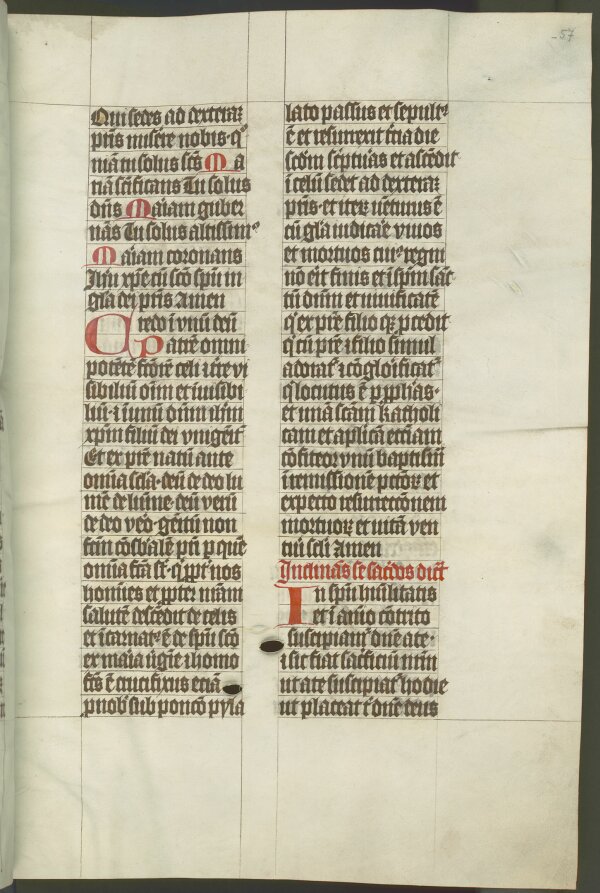 57
Qui sedes ad dexterā
pr̄is misere nobis· q̄
niā tu solus sc̄s Ma
riā sc̄ificans Tu solus
dn̄s Mariam guber
nās Tu solus altissimꝰ
Mariam coronans
Jhū xp̄e cū sc̄o sp̄u in
gl̄a dei pr̄is Amen
Credo ī vnū deū
Patrē omni
potētē fc̄orē celi ⁊ t̄re vi
sibiliū oīm et īuisibi
liū· ⁊ ī unū dn̄m ih̄m
xp̄m filiū dei vnigenitū
Et ex pr̄e natū ante
omīa sc̄la· deū de deo lu
mē de lumīe· deū verū
de deo vēo· genitū non
fc̄m cōsb̄alē pr̄i p quē
omīa fc̄a st̄· q̄ ppt̄ nos
homīes et ppter nr̄am
salutē descēdit de celis
et īcarnatꝰ ē de sp̄u sc̄o
ex maria v̄gīe ⁊ homo
fc̄s ē crucifixus eciā
p nob̄ sub poncō pyla
lato passus et sepultꝰ
ē et resurrexit t̄cia die
sc̄dm sc̄ptuās et ascēdit
ī celū sedet ad dexterā
pr̄is· et iterū uēturus ē
cū gl̄a iudicāe viuos
et mortuos cuiꝰ regni
nō eīt finis et ī sp̄m sāc
tū dn̄m et viuificātē
q̄ ex pr̄e filioqꝫ pcedit
q̄ cū pr̄e ⁊ filio simul
adorat̄ ⁊ cōglōificat̄
q̄ locutus ē p pph̄as·
et unā sc̄am katholi
cam et apl̄icā ecc̄iam
cōfiteor vnū baptismū
ī remissionē pctōꝝ et
expecto resurrectōnem
mortuoꝝ et uitā ven
turi sc̄li Amen
Inclināns se sac̄dos dicit
In sp̄u hūilitatis
et ī aīo cōtrito
suscipiam̄ dn̄e a te·
⁊ sic fiat sac̄ficiū nr̄m
ut a te suscipiat̄ hodie
ut placeat t̄ dn̄e deus